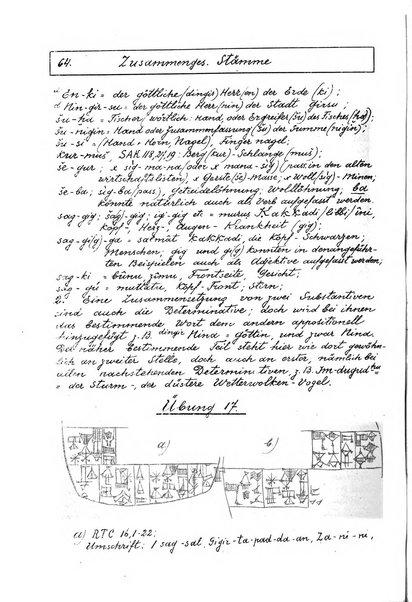 64. Zusammenges. Stämme
"En-ki = der göttliche (dingir) Herr (en) der Erde (ki);
Nin-gir-su = der göttliche Herr (nin) der Stadt Girsu;
šu-ha = Fischer, wörtlich: Hand, oder Ergreifer (šu) des Fisches (ha);
šu-nigin = Hand oder Zusammenfassung (šu) der Summe (nigin);
šu-si = (Hand = Horn, Nagel), Finger nagel;
Kur-muš SAK 118, 27, 19: Berg (kur)-Schlange (muš);
še-gur; x síg ma-na (oder x mana-síg) (nur in den alten
wirtschaftslisten), x Gerste (še)-Masse; x Woll (síg)-Minen;
še-ba; sig-ba (pass), Getreidelöhnung, Wolllöhnung; ba
könnte natürlich auch als Verb aufgefasst werden.
sag-gig; šag-gig; igi-gig etc = murus Kakkadi / libbi / îni,
Kopf-, Herz-, Augen-Krankheit (gig);
sag-gi(g)-ga = salmat kakkadi, die Kopf-Schwarzen;
Menschen, gig und gi(g) könnten in den angeführ-
ten Beispielen auch als Adjektive aufgefasst werden;
sag-ki = bunu zimu, Frontseite, Gesicht;
sag-gi = muttatu, Kopf-Front; Stirn;
2. Eine Zusammensetzung von zwei Substantiven
sind auch die Determinative; doch wird bei ihnen
das bestimmende Wort dem andern appositionell
hinzugefügt z.B. dingir Nina = Göttin, und zwar Nina.
Der näher bestimmende Teil steht hier wie dort gewöhn-
lich an zweiter Stelle, doch auch an erster, nämlich bei
allen nachstehenden Determinativen, z.B. Im-dugud hu
= der Sturm-, der düstere Wetterwolken-Vogel.
Übung 17.
a) b)
a) RTC 16, 1-22;
Umschrift: 1 sag-sal, Gigir-ta-pad-da-an, Za-ni-ni,